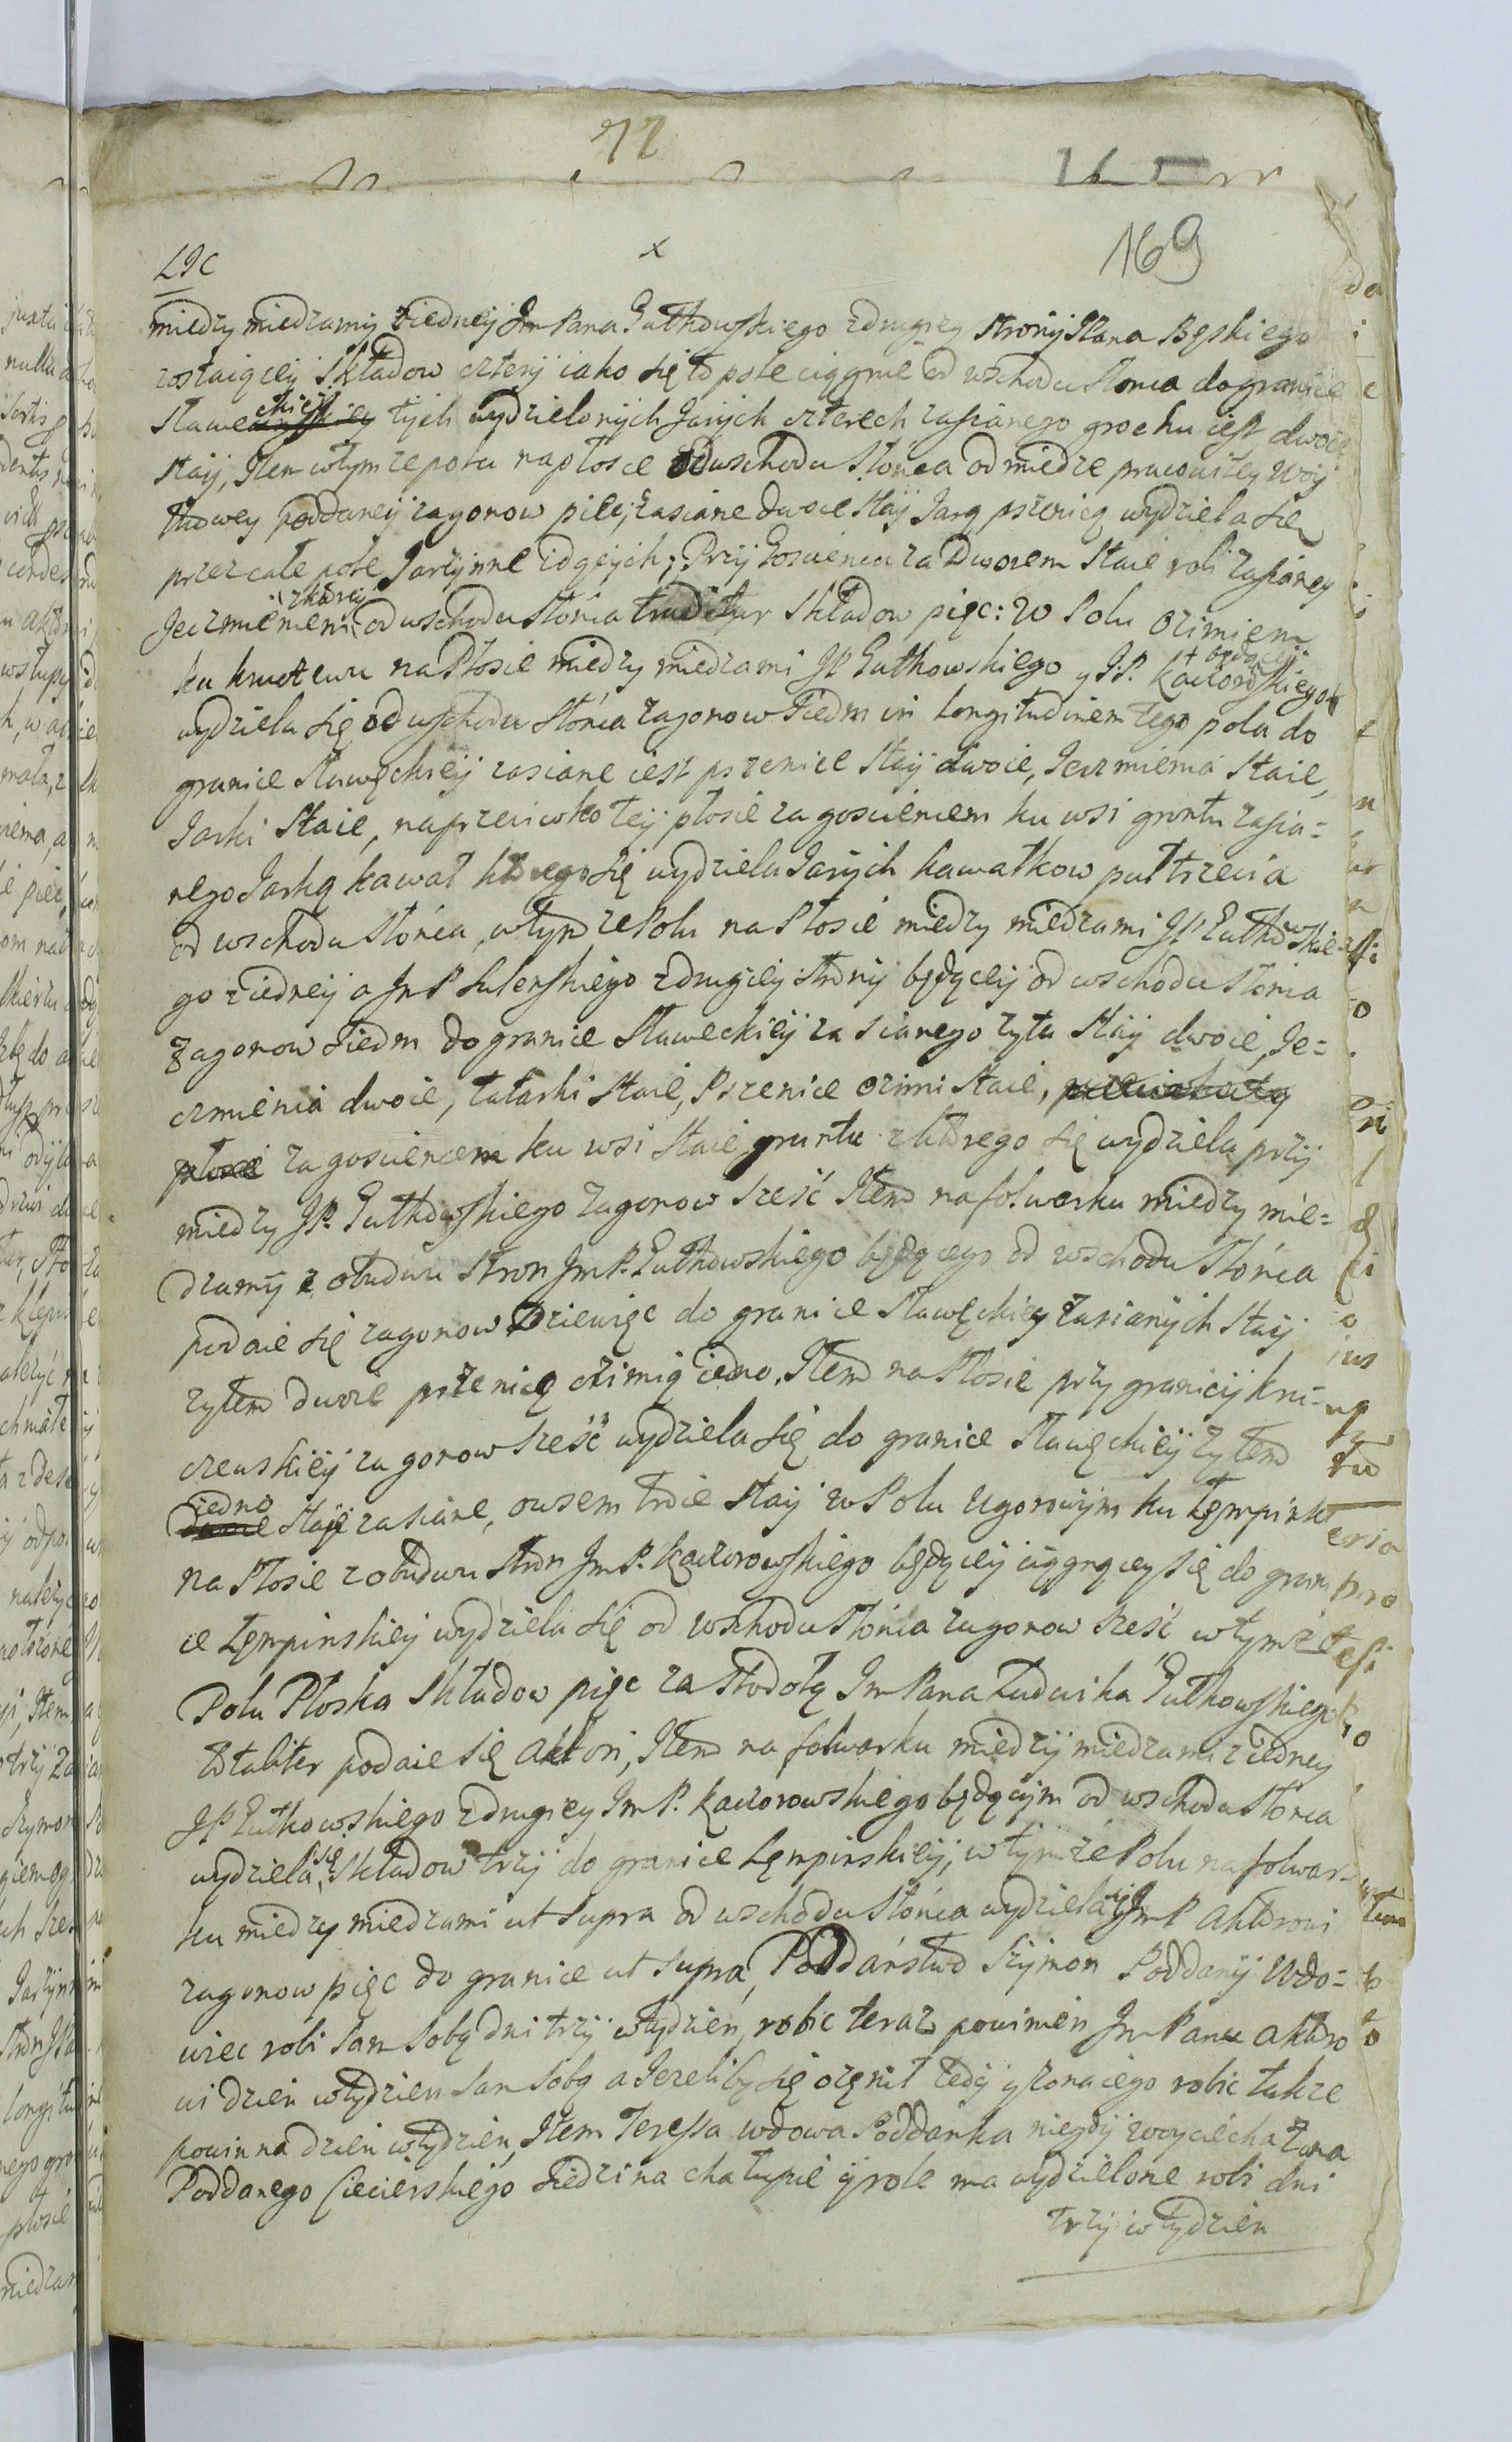 72
165
169
LJC
x
miedzy miedzamij ziedneij Jm Pana Gutkowskiego zdrugiey stronij JPana Bęskiego
zostaiąceij Składow czterij iako się to pole ciągnie od wschodu słonca do granice
Stawe ckieij tijch wydzielonijch Jarijch czterech zasianego grochu iest dwoie
staij, Item wtymze polu napłosce od wschodu słonca od miedze pracowitey Woij
towey poddaneij zagonow pięc, zasiane dwoie staij Jarą pszenicą wydziela się
przez całe pole Jarzijnne idącijch; Przij Goscincu za Dworem staie roli zasianey
Jęczmieniem z ktoreij od wschodu słonca traditur Składow pięc: w Polu ozimiem
ku kruczewu na Płosie miedzy miedzami JP Gutkowskiego y J.P. Kaczorowskiego będąceij
wydziela się od wschodu słonca zagonow siedm in longitudinem tego pola do
granice Stawęckieij zasiane iest pszenice staij dwoie, Jęczmienia staie,
Jarki staie, naprzeciwko teij płosie za goscincem ku wsi gruntu zasia=
nego Jarką kawał ktorego się wydziela Jarijch kawałkow puł trzecia
od wschodu słonca, wtymze Polu na Płosie miedzy miedzami JP Gutkowskie=
go ziedneij a JmP Sulerskiego zdrugieij stronij będąceij od wschodu słonca
Zagonow siedm do granice Stawęckieij zasianego zyta staij dwoie, Ję=
czmienia dwoie, tatarki staie, Pszenice ozimi staie,
za goscincem ku wsi staie gruntu z ktorego się wydziela przij
miedzy JP. Gutkowskiego zagonow sześć Item na folwarku miedzy mie=
dzamij z obudwu stron JmP. Gutkowskiego będącego od wschodu słonca
podaie się zagonow Dziewięc do granice Stawęckiey zasianijch staij
zytem dwoie pszenicą ozimią iedno. Item na Płosie przy granicij kru=
czewskieij zagonow sześć wydziela się do granice Stawęckieij zytem
iedno staije zasiane, owsem troie staij w Polu Ugorowijm ku Łęmpink
na Płosie z obudwu stron JmP. Kaczorowskiego będąceij ciągnąceij się do grani
ce Łęmpinskieij wydziela się od wschodu słonca zagonow sześć wtymze
Polu Płoska Składow pięc za stodołą Jm Pana Ludwika Gutkowskiego
totaliter podaie się Aktori, Item na folwarku miedzij miedzami ziedney
JP Gutkowskiego zdrugiey JmP. Kaczorowskiego będącijm od wschodu słonca
wydziela się Składow trzij do granice Łęmpinskieij, wtijmze Polu na folwar=
ku miedzy miedzami ut supra od wschodu słonca wydziela się JmP Aktorowi
zagonow pięc do granice ut supra, Poddaństwo Szijmon Poddanij Wdo=
wiec robi sam sobą dni trzij wtydzien, robic teraz powinien Jm Panu Aktoro
wi dzien wtydzien sam sobą a Jezeliby się ozęnił tedij y zona iego robic takze
powinna dzien wtydzien, Item Teressa wdowa Poddanka niegdij woyciecha
Poddanego Ciecierskiego siedzi na chałupie ij role ma wydzielone robi dni
trzij wtydzien